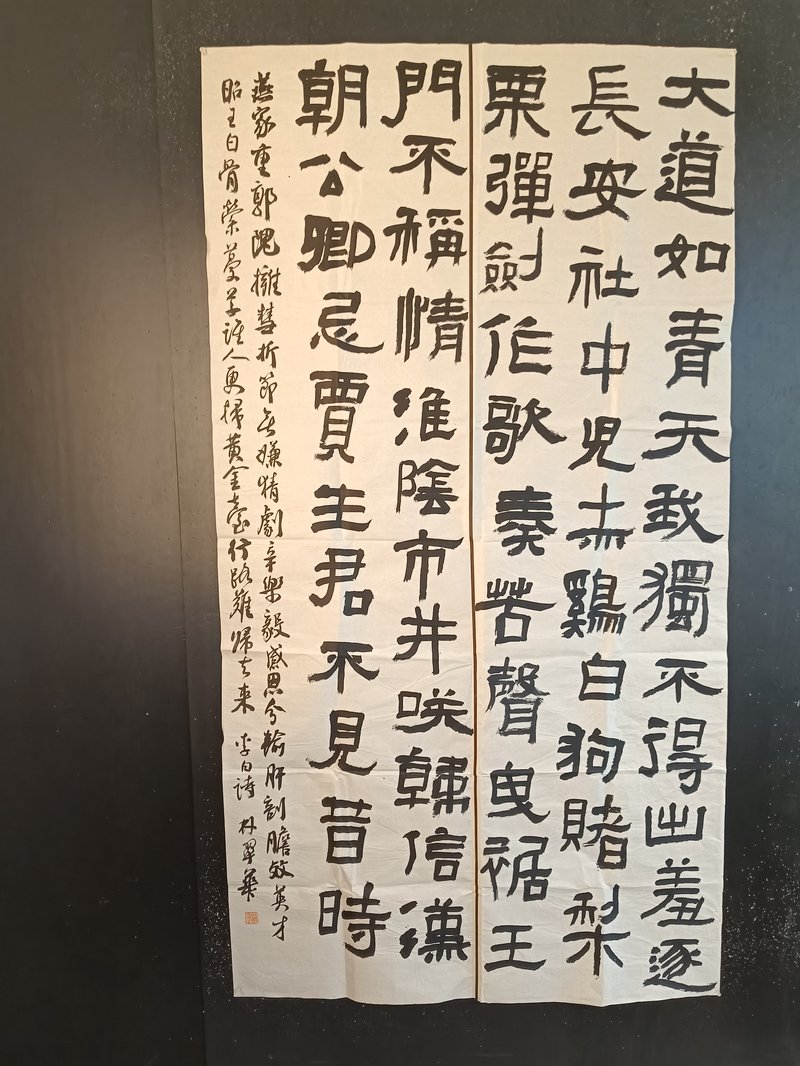 大道如青天我獨不得出羞逐
長安社中兒赤鷄白狗賭梨
栗彈劍作歌奏苦聲曳裾王
門不稱情淮陰市井咲韓信漢
朝公卿忌賈生君不見昔時
燕家重郭隗擁彗折節无嫌情劇辛樂毅感恩分輸肝剖膽效英才
昭王白骨縈蔓草誰人更掃黃金臺行路難歸去來 李白詩 林翠華